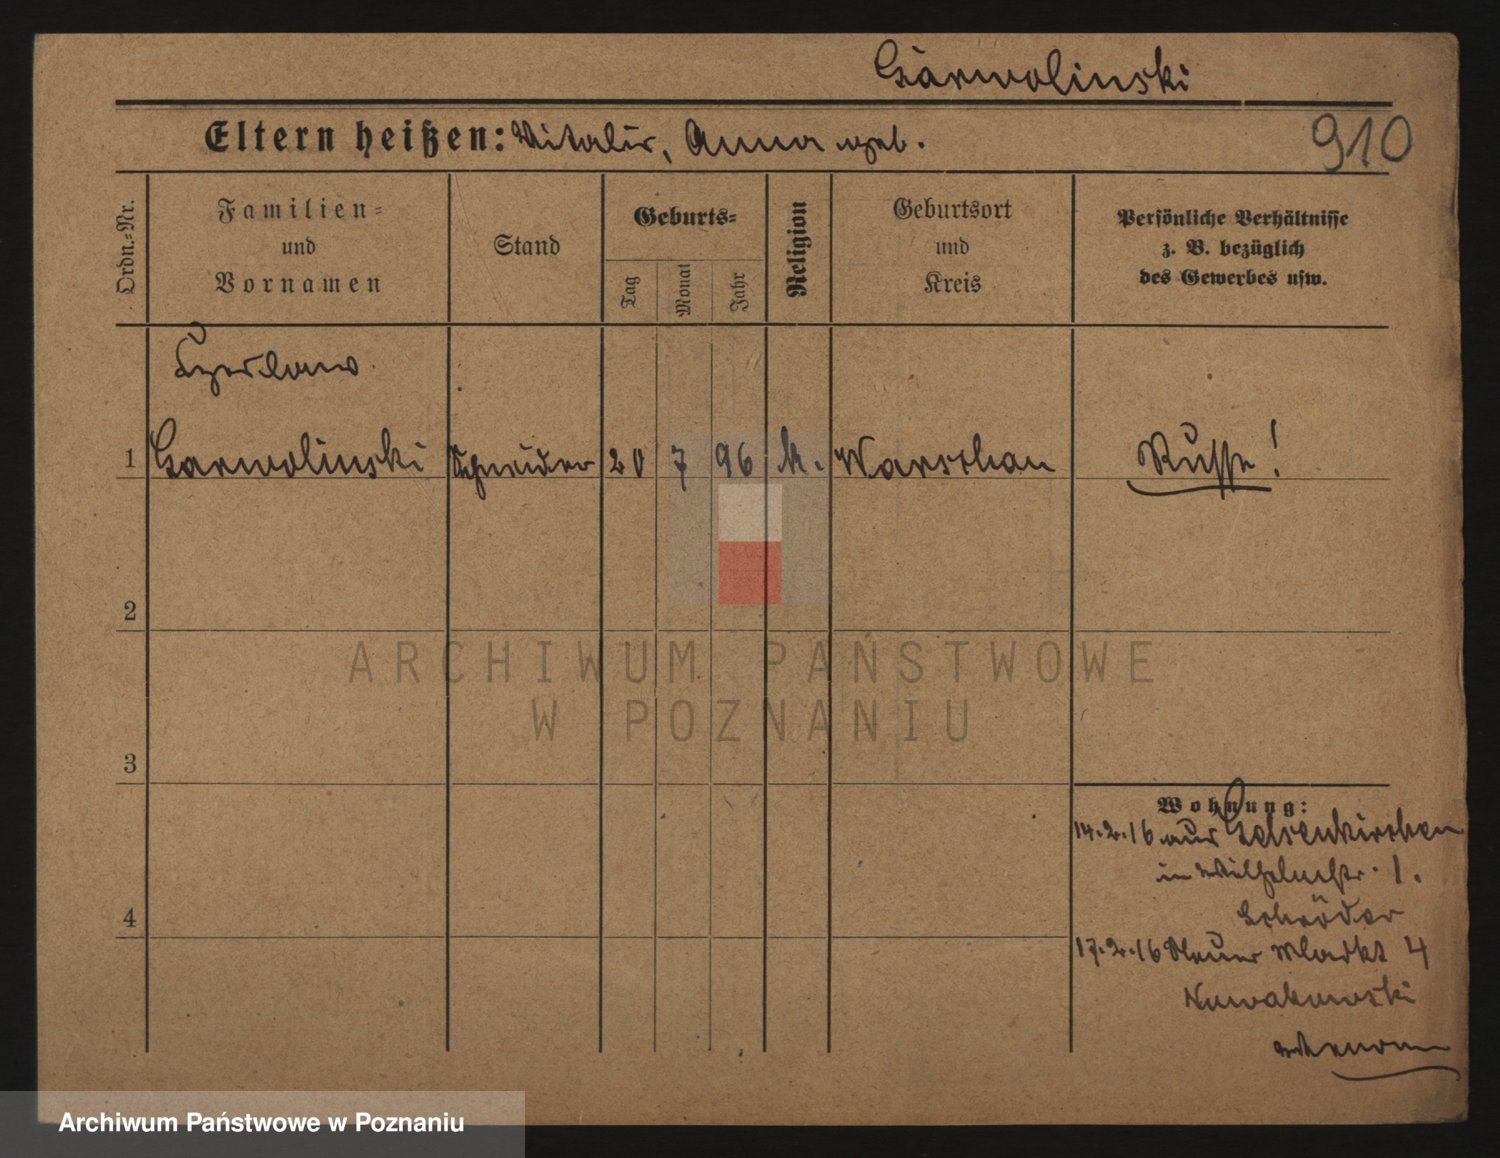 Garwolinski
Eltern heißen: Vitalis, Anna geb.
910
Ordn.-Nr.
Familien-
und
Vornamen
Stand
Geburts-
Tag
Monat
Jahr
Religion
Geburtsort
und
Kreis
Persönliche Verhältnisse
z. B. bezüglich
des Gewerbes usw.
1 Garwolinski Schneider 20 7 96 k. Warschau Russe!
2
ARCHIWUM PAŃSTWOWE
W POZNANIU
3
Wohnung:
14.2.16 aus Gelsenkirchen
in Wilhelmstr. 1.
Schröder
4
17.2.16 Neuer Markt 4
Nowakowski
Archiwum Państwowe w Poznaniu